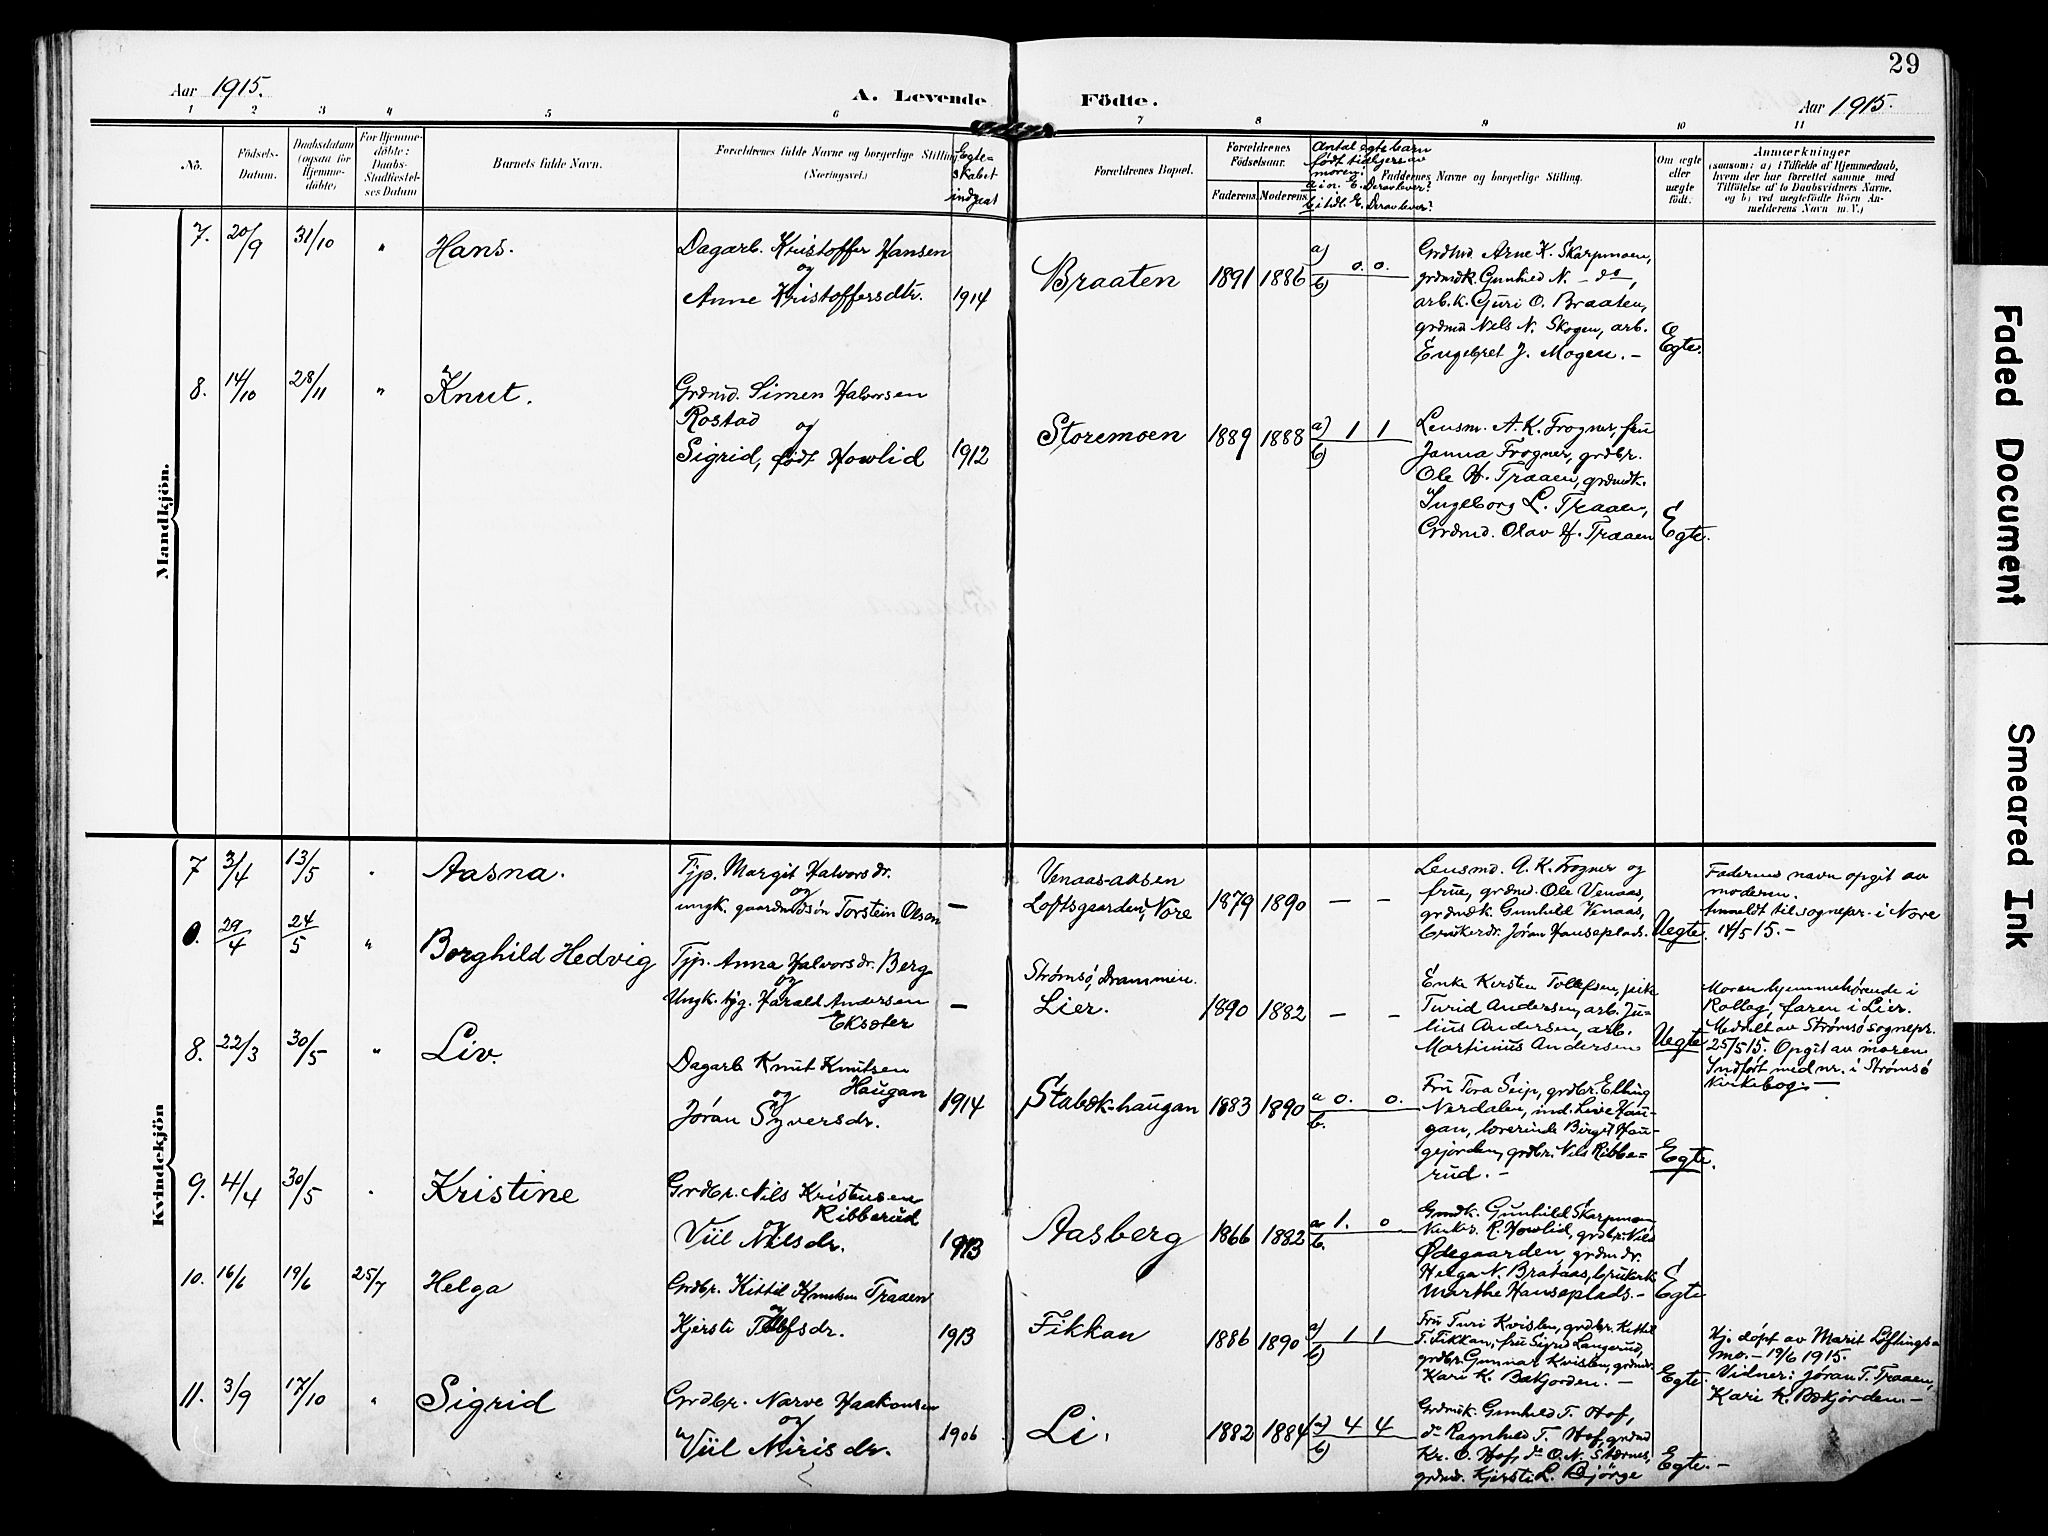 29
Aar 1915.
A. Levende Födte.
Aar 1915.
1 2 3 4 5 6 7 8 9 10 11
No.
Födsels-
Datum.
Daabsdatum
(ogsaa for
Hjemme-
döbte)
For Hjemme-
döbte:
Daabs-
Stadfæstel-
ses Datum
Barnets fulde Navn.
Forældrenes fulde Navne og borgerlige Stilling
(Næringsvei.)
Egte-
skabet
indgaat
Forældrenes Bopæl.
Forældrenes
Födselsaar.
Faderens. Moderens.
Antal egte barn
født tidligere av
moren:
a i n. E. Derav lever?
b i tidl. E. Derav lever?
Faddernes Navne og borgerlige Stilling.
Om ægte
eller
uægte
födt.
Anmærkninger
(saasom: a) i Tilfælde af Hjemmedaab,
hvem der har forrettet samme med
Tilföielse af to Daabsvidners Navne,
og b) ved uægtefödte Börn An-
melderens Navn m. V.)
Mandkjön.
7. 20/9 31/10 " Hans.
Dagarb. Kristoffer Hansen
og
Anne Kristoffersdtr. 1914
Braaten 1891 1886
a) 0. 0.
b)
Grdmd Arne K. Skarpmoen,
grdmdk. Gunhild N. - do,
arb.k. Guri O. Braaten,
grdmd Nels N. Skogen, arb.
Engebret J. Mogen. -
Egte.
8. 14/10 28/11 " Knut.
Grdmd. Simen Halvorsen
Rostad
og
Sigrid, født Howlid 1912
Storemoen 1889 1888
a) 1 1
b)
Lensm. A. K. Frogner, fru
Janna Frogner, grdbr.
Ole H. Traaen, grdmdk.
Ingeborg L. Traaen,
Grdmd. Olav H. Traaen
Egte.
Kvindekjön
7 3/4 13/5 " Aasna.
Tjp. Margit Halvorsdr.
og
ungk. gaardmdsøn Torstein Olsen —
Venaas-aasen
Loftsgaarden, Nore 1879 1890 — —
Lensmd. A. K. Frogner og
frue, grdmd. Ole Venaas,
grdmdk. Gunhild Venaas,
brukerdr. Jøran Hanseplads.
Uegte.
Faderens navn opgit av
moderen.
Anmeldt til sognepr. i Nore
14/5 15. -
0. 29/4 24/5 " Borghild Hedvig
Tjp. Anna Halvorsdr. Berg
og
Ungk. tjg. Harald Andersen
Eksæter —
Strømsø, Drammen.
Lier. 1890 1882 — —
Enke Kirsten Tollefsen, pike
Turid Andersen, arb. Ju-
lius Andersen, arb.
Martinius Andersen
Uegte
Moren hjemmehørende i
Rollag, faren i Lier.
Meddelt av Strømsø sognepr.
25/5 15. Opgit av moren
Indført med nr. i Strømsø
kirkebog. —
8. 22/3 30/5 " Liv.
Dagarb Knut Knutsen
Haugan
og
Jøran Syversdr. 1914
Stabæk-haugan 1883 1890
a 0. 0.
b.
Fru Tora Seip, grdbr. Elling
Nørdalen, ind. Live Hau-
gan, lærerinde Birgit Hau-
gejorden, grdbr. Nils Ribbe-
rud. -
Egte.
9. 4/4 30/5 " Kristine
Grdbr. Nils Kristensen
Ribberud
og
Viil Nilsdr. 1913
Aasberg 1866 1882
a 1. 0
b.
Grmdk. Gunhild Skarpmoen,
Kirkes. R. Howlid, grdbr. Nils
Ødegaarden, grdmdr.
Helga N. Brataas, brukerk.
Marthe Hanseplads. -
Egte
10. 16/6 19/6 25/7 Helga
Grdbr. Kittil Knutsen Traaen
og
Kjersti Tolofsdr. 1913
Fikkan 1886 1890
a) 1 1
b)
Fru Turi Kvislen, grdbr. Kittil
T. Fikkan, fru Sigrid Langerud,
grdbr. Gunnar Kvislen, grdmdr.
Kari K. Bækjorden. -
Egte.
Hj. døpt av Marit Løftings-
mo. - 19/6 1915.
Vidner: Jøran T. Traaen,
Kari K. Bækjorden. -
11. 3/9 17/10 " Sigrid
Grdbr. Narve Haakonsen
og
Viil Nirisdr. 1906
Li. 1882 1884
a) 4 4
b)
Grdmdk. Gunhild T. Hof,
do Ragnhild T. Hof, grdmd
Kr. O. Hof, do O. N. Stærnes,
grdmd. Kjersti L. Bjørge
Egte. -
Faded Document
Smeared Ink